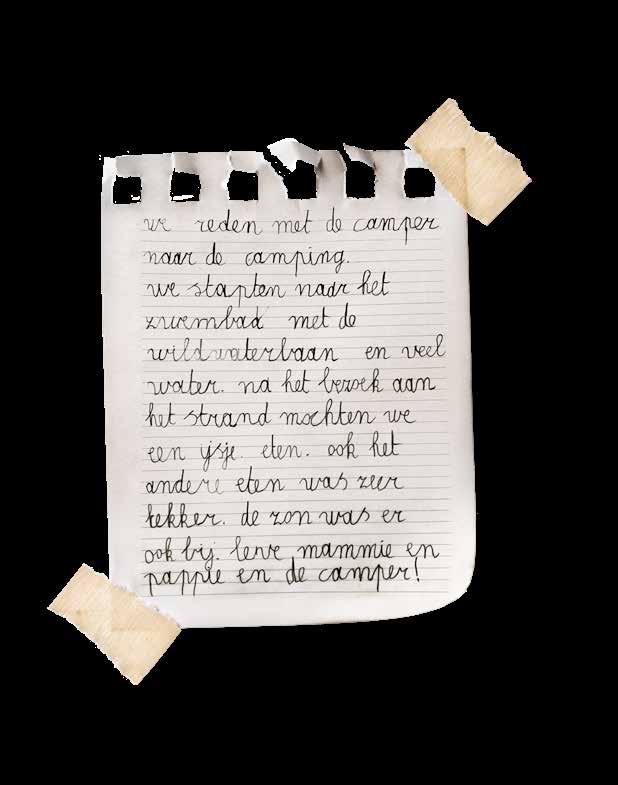 we reden met de camper
naar de camping.
we stapten naar het
zwembad met de
wildwaterbaan en veel
water. na het bezoek aan
het strand mochten we
een ijsje. eten. ook het
andere eten was zeer
lekker. de zon was er
ook bij. leve mammie en
pappie en de camper!